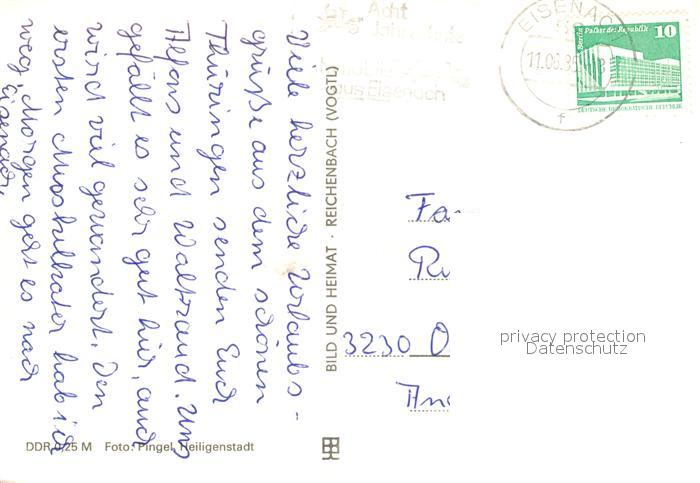 Viele herzliche Urlaubs-
grüße aus dem schönen
Thüringen senden Euch
Alfons und Waltraud. Uns
gefällt es sehr gut hier, auch
wird viel gewandert. Den
ersten Muskelkater hab ich
weg. Morgen geht es nach
Eisenach.
BILD UND HEIMAT · REICHENBACH (VOGTL)
DDR 0,25 M Foto: Pingel, Heiligenstadt
Acht
aus Eisenach
EISENACH
11.06.
f
Berlin Palast der Republik 10
DEUTSCHE DEMOKRATISCHE REPUBLIK
Fa
Ru
3230 O
privacy protection
Datenschutz